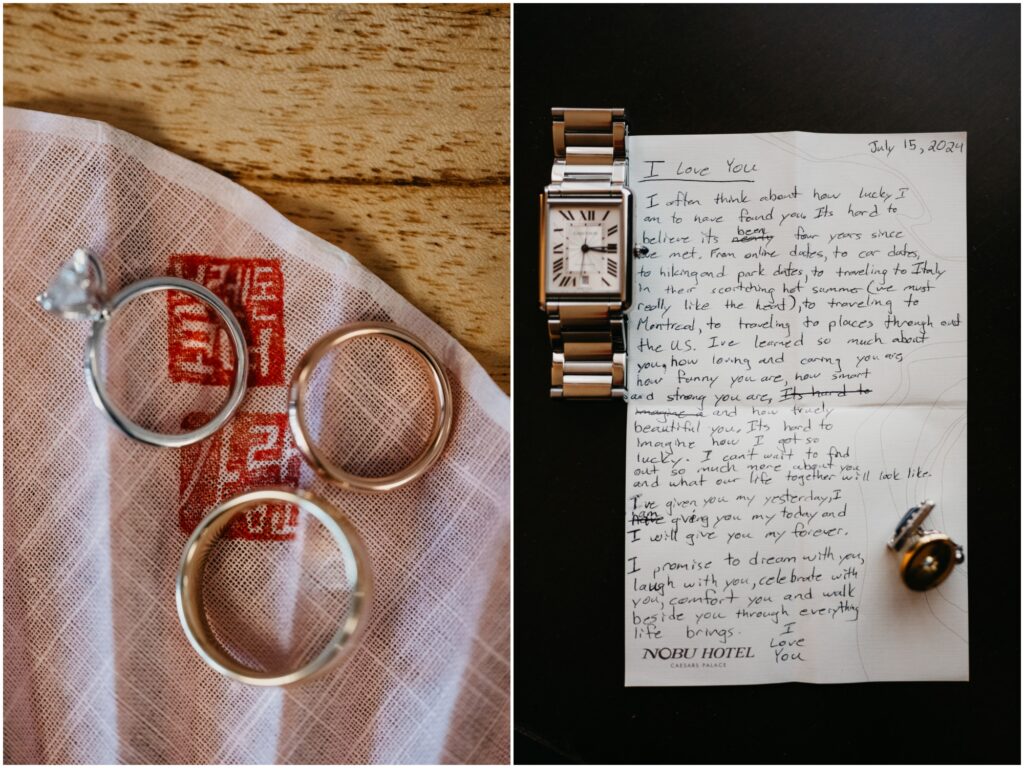 July 15, 2024
I Love You
I often think about how lucky I
am to have found you. Its hard to
believe its been four years since
we met. From online dates, to car dates,
to hiking and park dates, to traveling to Italy
in their scortching hot summer (we must
really like the heat), to traveling to
Montreal, to traveling to places through out
the U.S. I've learned so much about
you, how loving and caring you are,
how funny you are, how smart
and strong you are, Its hard to
imagine a and how truely
beautiful you. Its hard to
Imagine how I got so
lucky. I can't wait to find
out so much more about you
and what our life together will look like.
I've given you my yesterday, I
am giving you my today and
I will give you my forever.
I promise to dream with you,
laugh with you, celebrate with
you, comfort you and walk
beside you through everything
life brings. I
Love
You
NOBU HOTEL
CAESARS PALACE